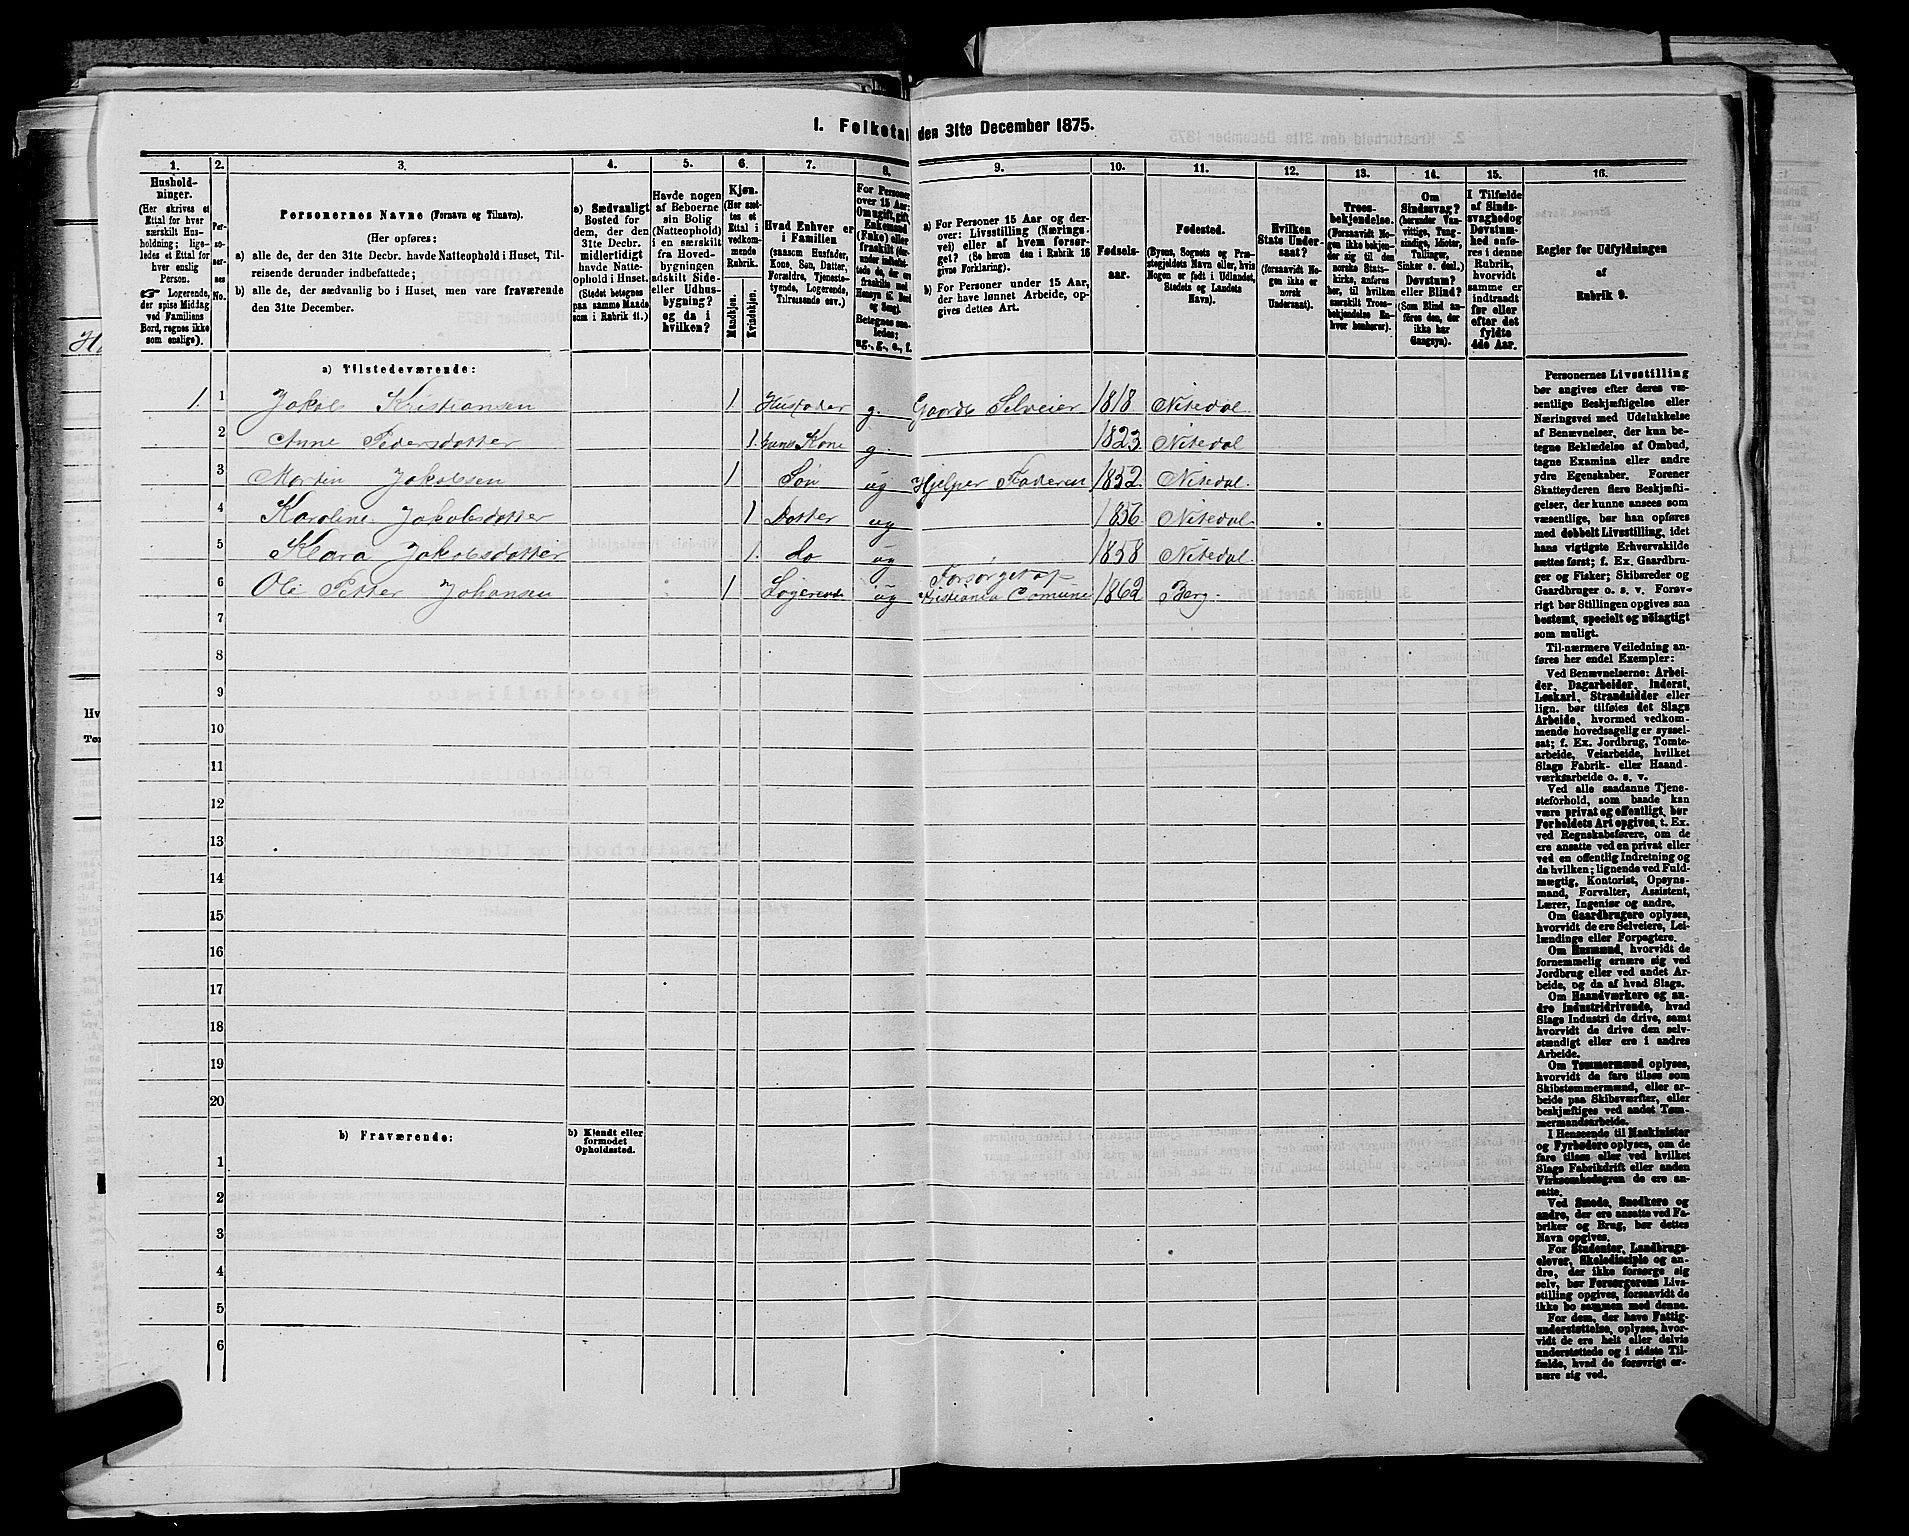 1. Folketal den 31te December 1875.
1. 2. 3. 4. 5. 6. 7. 8. 9. 10. 11. 12. 13. 14. 15. 16.
Husholdninger.
(Her skrives et Ettal for hver særskilt Husholdning; ligeledes et Ettal for hver enslig Person.
☞ Logerende, der spise Middag ved Familiens Bord, regnes ikke som enslige).
Personernes No.
Personernes Navne (Fornavn og Tilnavn).
(Her opføres:
a) alle de, der den 31te Decbr. havde Natteophold i Huset, Tilreisende derunder indbefattede;
b) alle de, der sædvanlig bo i Huset, men vare fraværende den 31te December.
a) Sædvanligt Bosted for dem, der den 31te Decbr. midlertidigt havde Natteophold i Huset.
(Stedet betegnes paa samme Maade som i Rubrik 11.)
Havde nogen af Beboerne sin Bolig (Natteophold) i en særskilt fra Hovedbygningen adskilt Side- eller Udhusbygning? og da i hvilken?
Kjøn.
(Her sættes et Ettal i vedkommende Rubrik.)
Mandkjøn.
Kvindekjøn.
Hvad Enhver er i Familien
(saasom Husfader, Kone, Søn, Datter, Forældre, Tjenestetyende, Logerende, Tilreisende osv.)
For Personer over 15 Aar: Om ugift, gift, Enkemand (Enke) eller fraskilt
Betegnes saaledes: ug., g., e., f.
a) For Personer 15 Aar og derover: Livsstilling (Næringsvei) eller af hvem forsørget? (Se herom den i Rubrik 16 givne Forklaring).
b) For Personer under 15 Aar, der have lønnet Arbeide, opgives dettes Art.
Fødselsaar.
Fødested.
(Byens, Sognets og Præstegjeldets Navn eller, hvis Nogen er født i Udlandet, Stedets og Landets Navn).
Hvilken Stats Undersaat?
(forsaavidt Nogen ikke er norsk Undersaat).
Troesbekjendelse.
(Forsaavidt Nogen ikke bekjender sig til den norske Statskirke, anføres her, til hvilken særskilt Troesbekjendelse Enhver henhører).
Om Sindssvag? (herunder Vanvittige, Tungsindige, Idioter, Tullinger, Sinker o. desl.) Døvstum? eller Blind? (Som Blind anføres den, der ikke har Gangsyn).
I Tilfælde af Sindssvaghed og Døvstumhed anføres i denne Rubrik, hvorvidt samme er indtraadt før eller efter det fyldte 4de Aar.
Regler for Udfyldningen af Rubrik 9.
a) Tilstedeværende:
1. 1 Jakob Kristiansen 1 Husfader g. Gaardb Selveier 1818 Nitedal.
2 Anne Pedersdatter 1. hans Kone g. 1823 Nitedal
3 Martin Jakobsen 1 Søn ug Hjelper Faderen 1852. Nitedal.
4 Karoline Jakobsdatter 1 Datter ug 1856 Nitedal
5 Klara Jakobsdatter 1. do ug 1858 Nitedal.
6 Ole Petter Johansen 1 Logerende ug Forsørget af Kristiania Comune 1862 Berg.
7
8
9
10
11
12
13
14
15
16
17
18
19
20
b) Fraværende:
b) Kjendt eller formodet Opholdssted.
1
2
3
4
5
6
Personernes Livsstilling
bør angives efter deres væ-
sentlige Beskjæftigelse eller
Næringsvei med Udelukkelse
af Benævnelser, der kun be-
tegne Beklædelse af Ombud,
tagne Examina eller andre
ydre Egenskaber. Forener
Skatteyderen flere Beskjæfti-
gelser, der kunne ansees som
væsentlige, bør han opføres
med dobbelt Livsstilling, idet
hans vigtigste Erhvervskilde
sættes først; f. Ex. Gaardbru-
ger og Fisker; Skibsreder og
Gaardbruger o. s. v. Forøv-
rigt bør Stillingen opgives saa
bestemt, specielt og nøiagtigt
som muligt.
Til nærmere Veiledning an-
føres her endel Exempler:
Ved Benævnelserne: Arbei-
der, Dagarbeider, Inderst,
Løskarl, Strandsidder eller
lign. bør tilføies det Slags
Arbeide, hvormed vedkom-
mende hovedsagelig er syssel-
sat; f. Ex. Jordbrug, Tomte-
arbeide, Veiarbeide, hvilket
Slags Fabrik- eller Haand-
værksarbeide o. s. v.
Ved alle saadanne Tjene-
steforhold, som baade kan
være privat og offentligt, bør
Forholdets Art opgives, t. Ex.
ved Regnskabsførere, om de
ere ansatte ved en privat eller
ved en offentlig Indretning og
da hvilken; lignende ved Fuld-
mægtig, Kontorist, Opsyns-
mand, Forvalter, Assistent,
Lærer, Ingeniør og andre.
Om Gaardbrugere oplyses,
hvorvidt de ere Selveiere, Lei-
lændinge eller Forpagtere.
Om Husmænd, hvorvidt de
fornemmelig ernære sig ved
Jordbrug eller ved andet Ar-
beide, og da af hvad Slags.
Om Haandværkere og an-
dre Industridrivende, hvad
Slags Industri de drive, samt
hvorvidt de drive den selv-
stændigt eller ere i andres
Arbeide.
Om Tømmermænd oplyses,
hvorvidt de fare tilsøs som
Skibstømmermænd, eller ar-
beide paa Skibsværfter, eller
beskjæftiges ved andet Tøm-
mermandsarbeide.
I Henseende til Maskinister
og Fyrbødere oplyses, om de
fare tilsøs eller ved hvilket
Slags Fabrikdrift eller anden
Virksomhedsgren de ere an-
satte.
Ved Smede, Snedkere og
andre, der ere ansatte ved Fa-
briker og Brug, bør dettes
Navn opgives.
For Studenter, Landbrugs-
elever, Skoledisciple og an-
dre, der ikke forsørge sig
selv, bør Forsørgerens Livs-
stilling opgives, forsaavidt de
ikke bo sammen med denne.
For dem, der have Fattig-
understøttelse, oplyses, hvor-
vidt de ere helt eller delvis
understøttede og i sidste Til-
fælde, hvad de forøvrigt er-
nære sig ved.